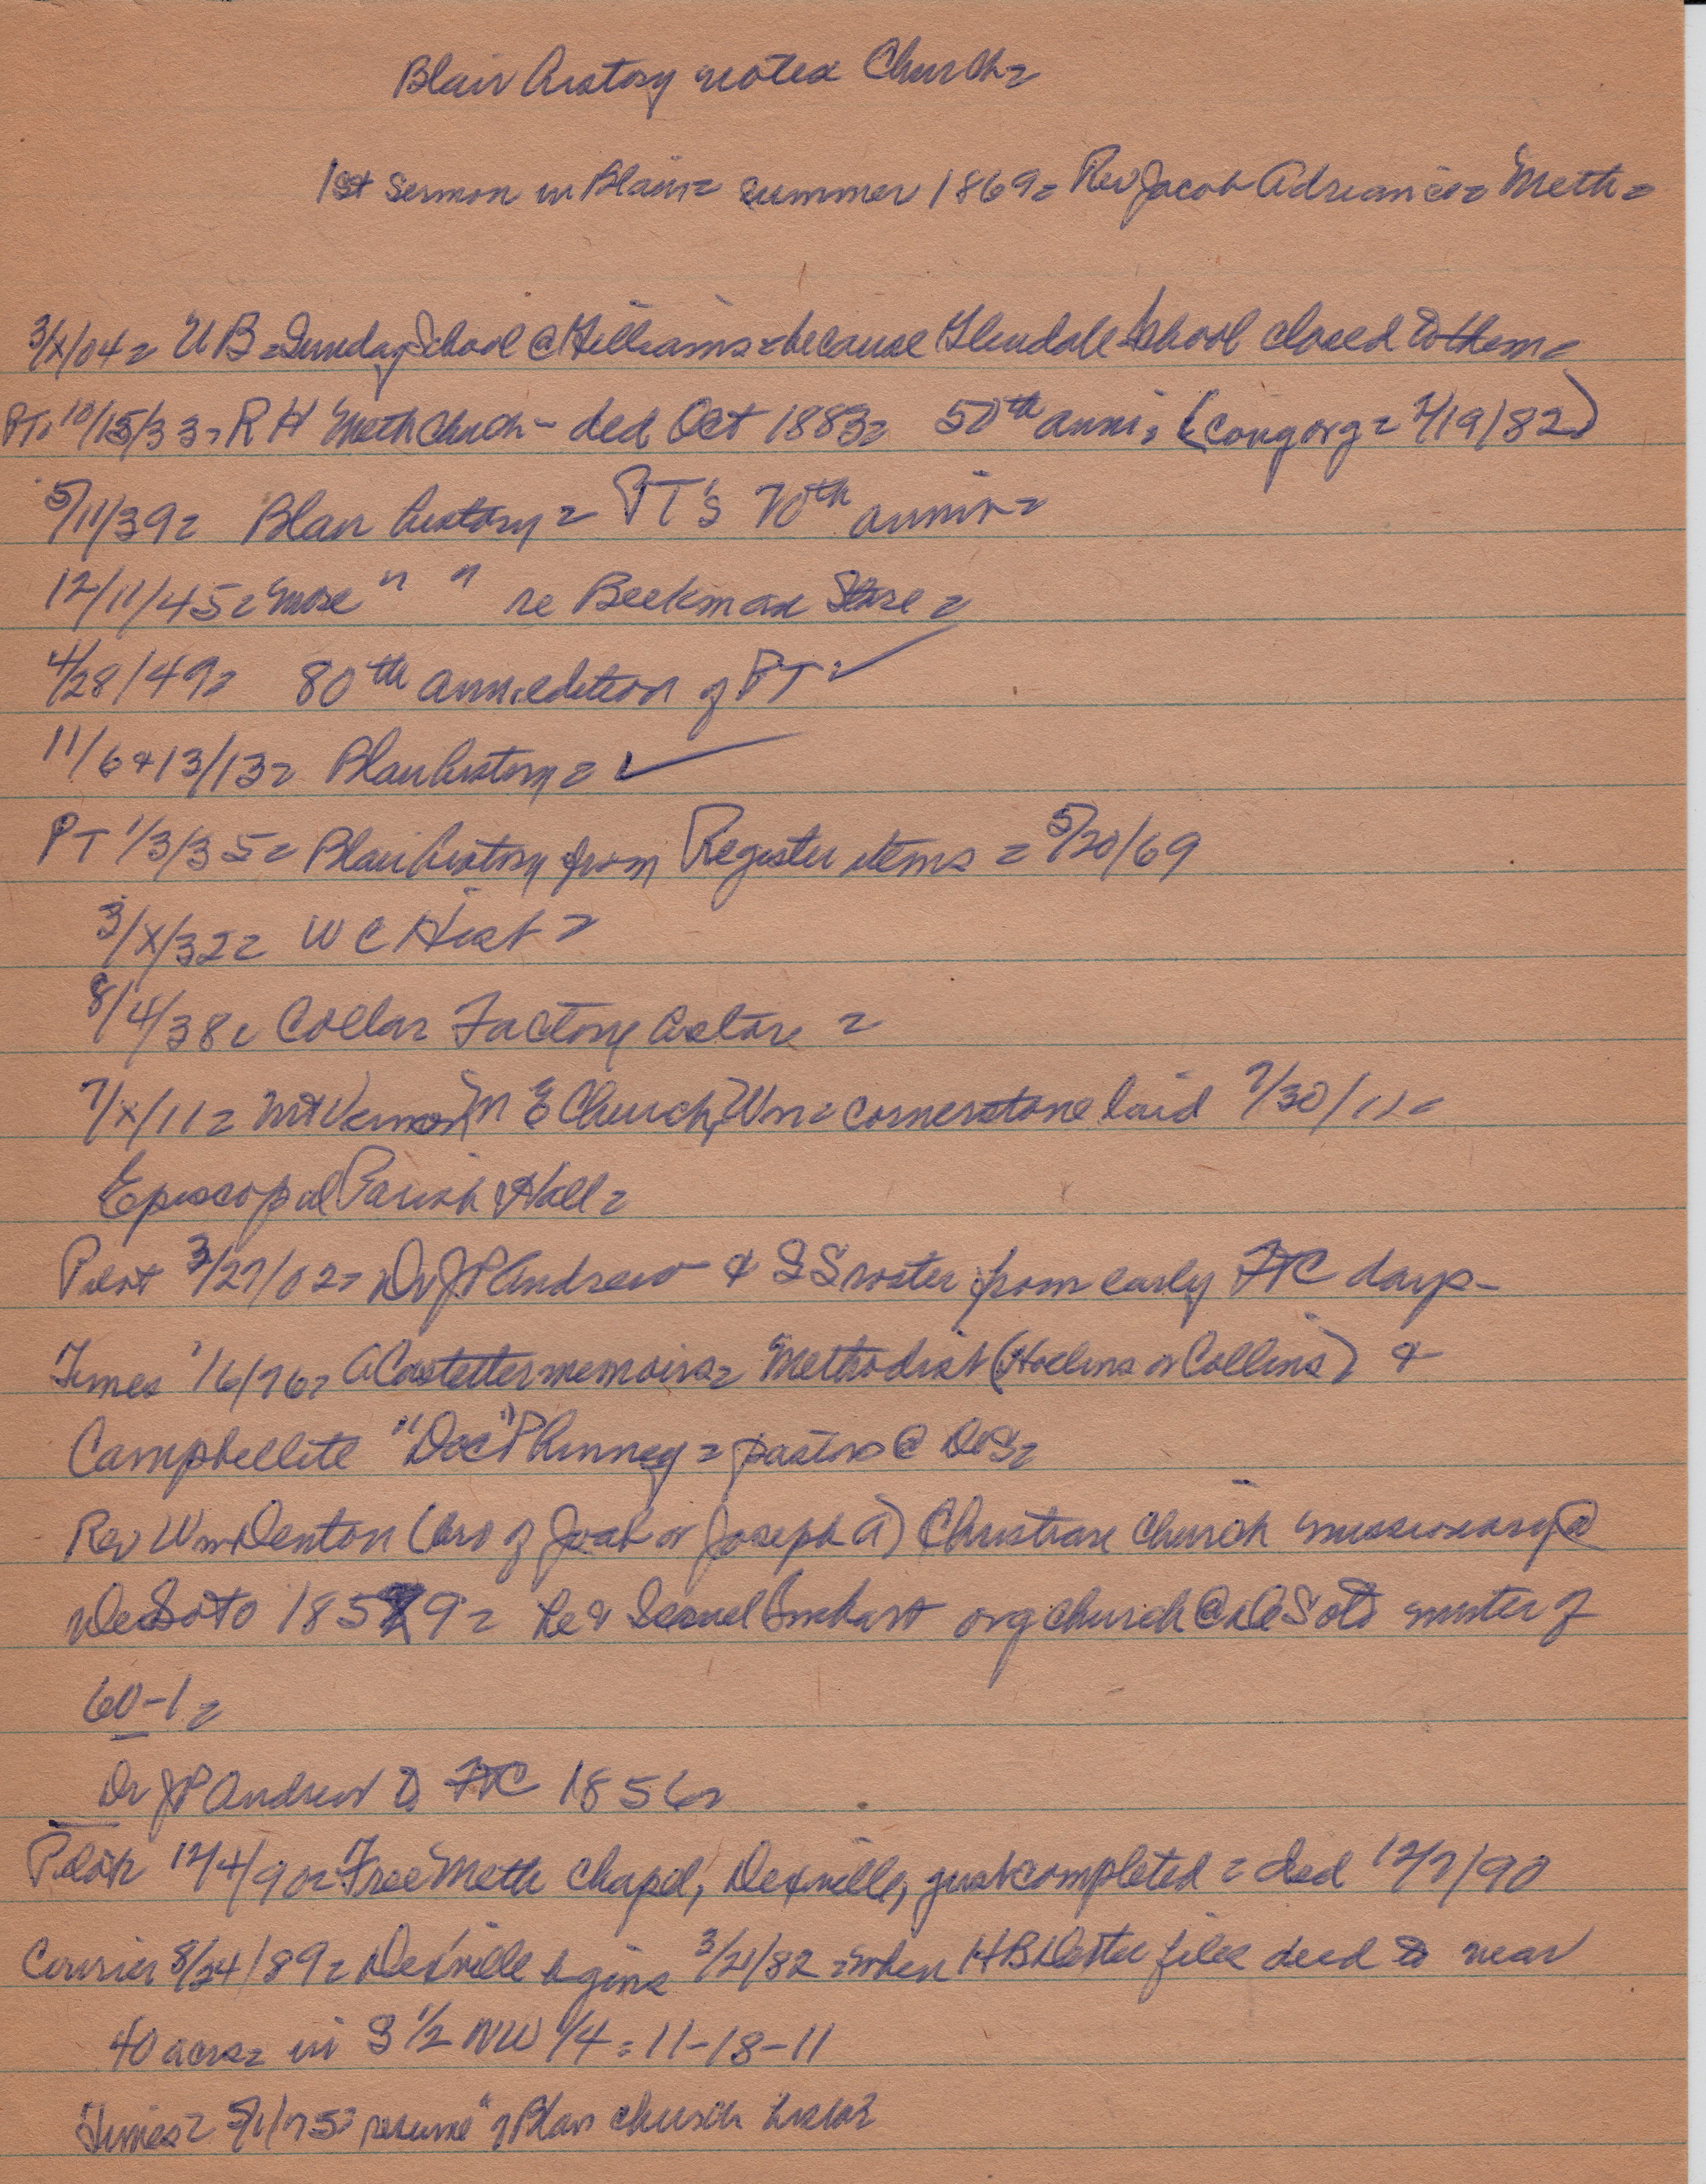 Blair history notes Church =
1st sermon in Blair = summer 1869 = Rev Jacob Adriance = Meth =
3/X/04 = UB = Sunday School @ Hilliams = because Glendale School closed to them =
PT = 10/15/33 = R H Meth Church - ded Oct 1883 = 50th anni = (cong org = 2/19/82)
5/11/39 = Blair history = PT's 70th anniv =
12/11/45 = more " " re Beekman Store =
4/28/49 = 80th ann. edition of PT = ✓
11/6 & 13/13 = Blair history = ✓
PT 1/3/35 = Blair history from Register items = 5/20/69
3/X/32 = W C Hist =
8/4/38 = Collar Factory =
7/X/11 = Mt Vernon M E Church, Wn = cornerstone laid 7/30/11 =
Episcopal Parish Hall =
Pilot 3/27/02 = Dr JP Andrew & SS roster from early FTC days -
Times 1/6/76 = A Castetter memoirs = Methodist (Hollins or Collins) &
Campbellite "Doc" Phinney = pastors @ DeS =
Rev Wm Denton (bro of Joab or Joseph A) Christian Church missionary @
DeSoto 1859 = he & org church @ DeSoto winter of
60-1 =
Dr JP Andrew to FTC 1856 =
Pilot 12/4/90 = Free Meth chapel, Dexville, just completed = ded 12/7/90
Courier 8/24/89 = Dexville begins 3/21/82 = when HB Dexter files deed to near
40 acres in S 1/2 NW 1/4 = 11-18-11
Times = 5/1/75 = resume of Blair church